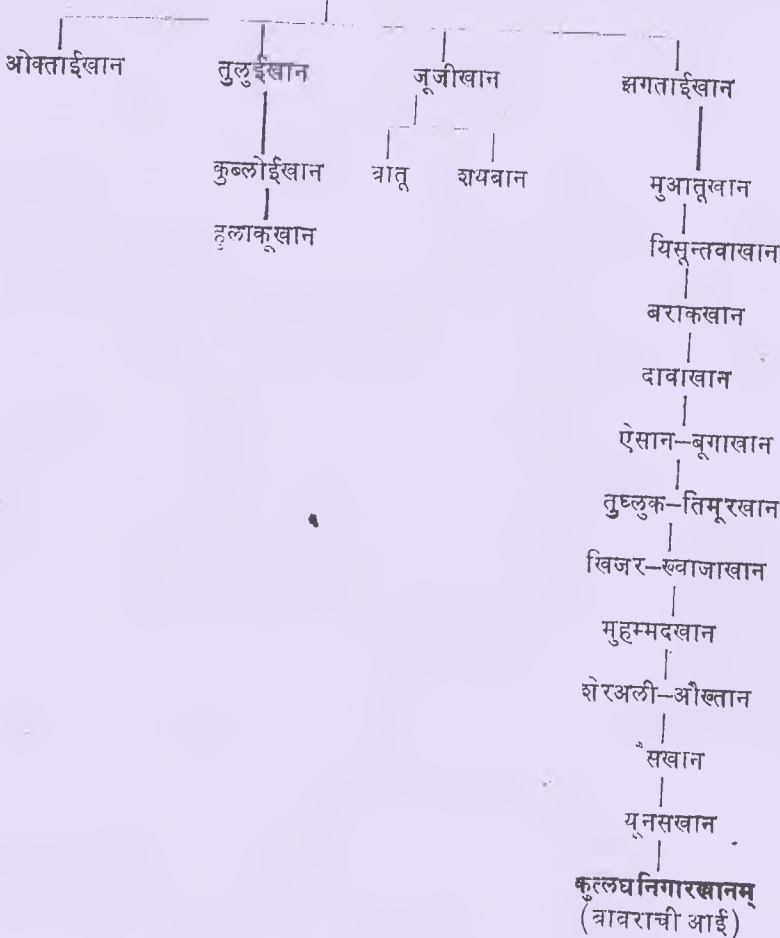 ओक्ताईखान तुलुईखान जूजीखान झगताईखान
कुब्लोईखान बातू शयबान मुआतूखान
हुलाकूखान
यिसून्तवाखान
बराकखान
दावाखान
ऐसान–बूगाखान
तुघ्लुक–तिमूरखान
खिजर–ख्वाजाखान
मुहम्मदखान
शेरअली–औख्तान
सखान
यूनसखान
कुत्लघनिगारखानम्
(बाबराची आई)